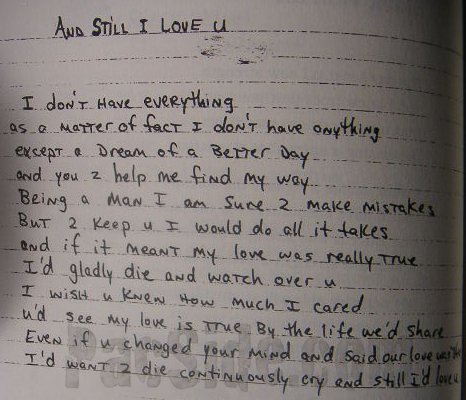 And Still I Love u
I don't Have everything
as a matter of fact I don't have anything
except a Dream of a Better Day
and you 2 help me find my way
Being a man I am sure 2 make mistakes
But 2 keep u I would do all it takes
and if it meant my love was really true
I'd gladly die and watch over u
I wish u knew how much I cared
u'd see my love is true By the life we'd share
Even if u changed your mind and said our love was
I'd want 2 die continuously cry and still I'd love u